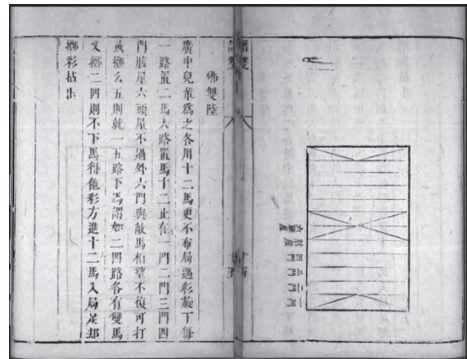 一門
二門
三門
四門
佛雙陸
廣中兒輩為之各用十二馬更不布局遇彩旋下每
一路置二馬六路置馬十二止在一門二門三門四
門肢屋六頭屋不過外六門與敵馬相望不復可打
或擲么五則就 五路下馬謂如二四路各有雙馬
又擲二四則不下馬待他彩方進十二馬入局足却
擲彩拈出